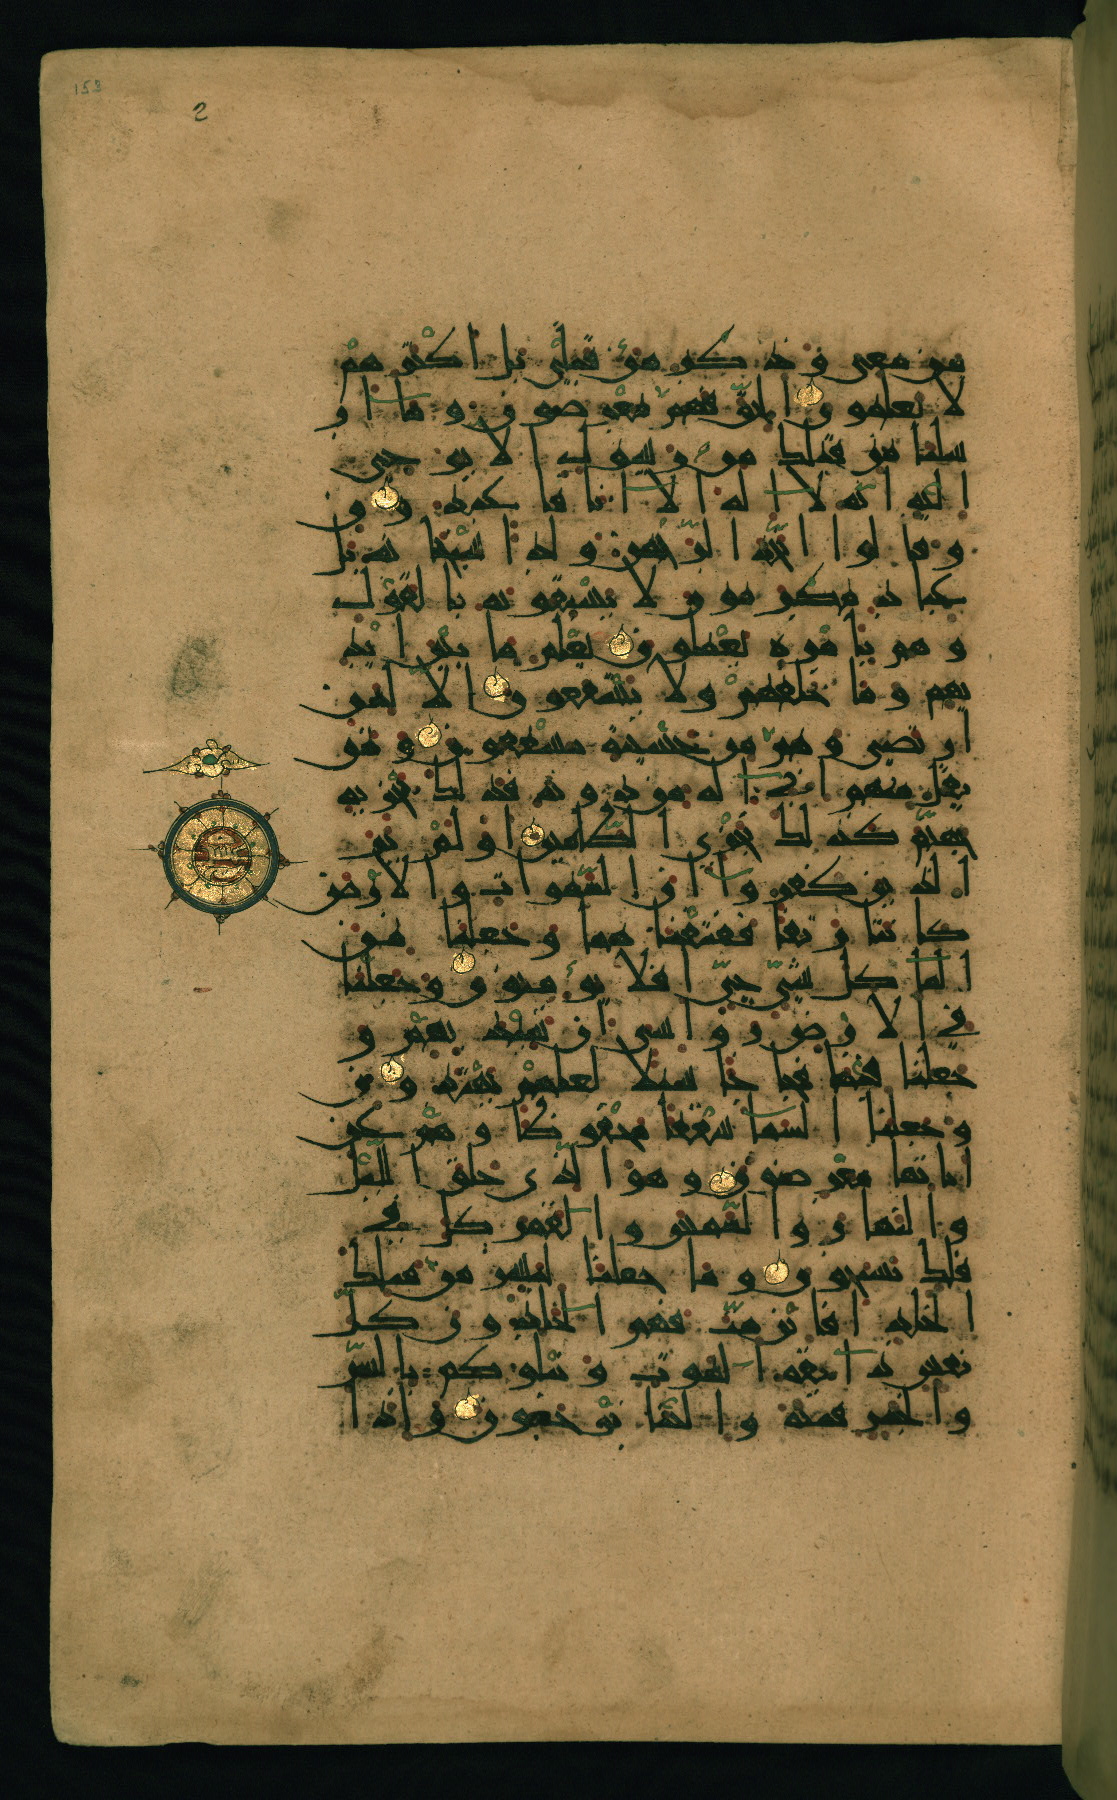 153
2
من معي وذكر من قبلي بل اكثرهم
لا يعلمون الحق فهم معرضون وما ار
سلنا من قبلك من رسول الا نوحي
اليه انه لا اله الا انا فاعبدون
وقالوا اتخذ الرحمن ولدا سبحانه بل
عباد مكرمون لا يسبقونه بالقول
وهم بامره يعملون يعلم ما بين ايد
يهم وما خلفهم ولا يشفعون الا لمن
ارتضى وهم من خشيته مشفقون ومن
يقل منهم اني اله من دونه فذلك نجزيه
جهنم كذلك نجزي الظلمين اولم ير
الذين كفروا ان السموات والارض
كانتا رتقا ففتقنا هما وجعلنا من
الما كل شي حي افلا يؤمنون وجعلنا
في الارض رواسي ان تميد بهم و
جعلنا فيها فجاجا سبلا لعلهم يهتدون
وجعلنا السما سقفا محفوظا وهم عن
اياتها معرضون وهو الذي خلق الليل
والنهار والشمس والقمر كل في
فلك يسبحون وما جعلنا لبشر من قبلك
الخلد افاين مت فهم الخلدون كل
نفس ذائقة الموت ونبلوكم بالشر
والخير فتنة والينا ترجعون واذا